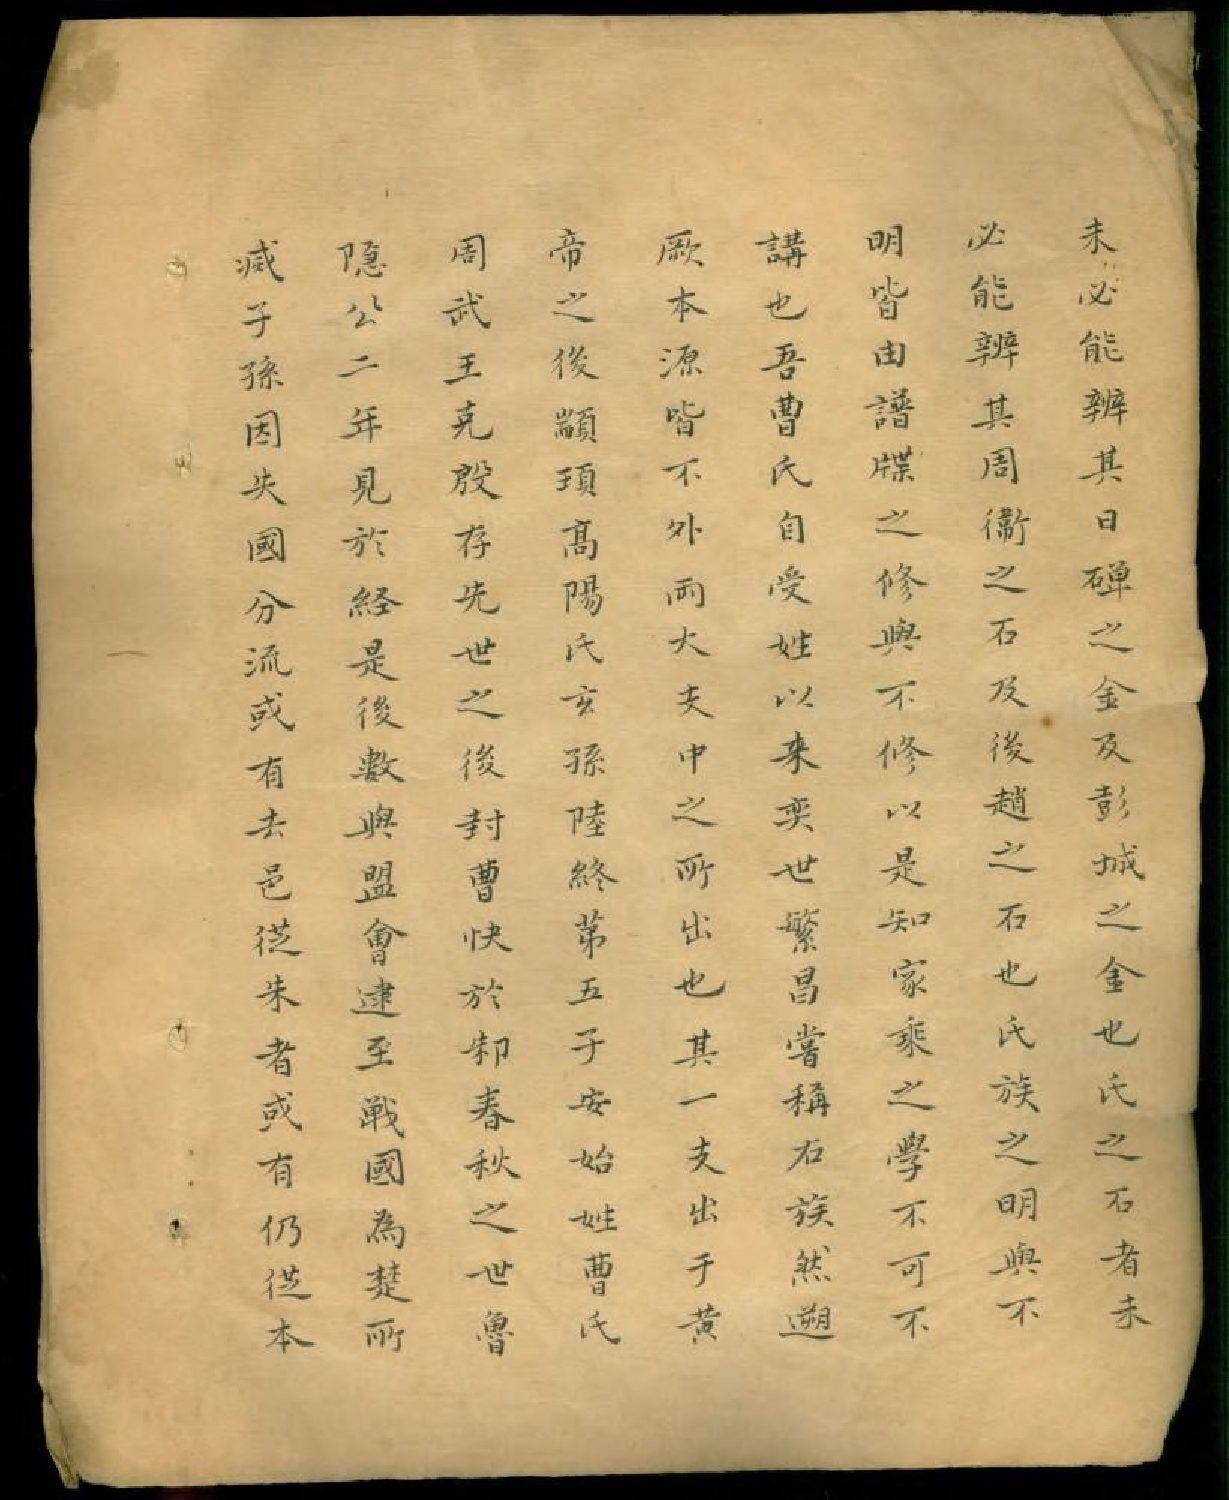 未必能辨其日磾之金及彭城之金也氏之石者未
必能辨其周衛之石及後趙之石也氏族之明與不
明皆由譜牒之修與不修以是知家乘之學不可不
講也吾曹氏自受姓以来奕世繁昌嘗稱右族然遡
厥本源皆不外兩大支中之所出也其一支出于黄
帝之後顓頊高陽氏玄孫陸終第五子安始姓曹氏
周武王克殷存先世之後封曹快於邾春秋之世魯
隠公二年見於経是後數與盟會逮至戦國為楚所
减子孫因失國分流或有去邑従朱者或有仍従本